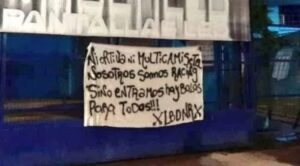 Ni ORTIVA Ni MULTICAMISETA
NOSOTROS SOMOS RACING
SiNO ENTRAMOS HAY
PARA TODOS!!!
XLBDNRX